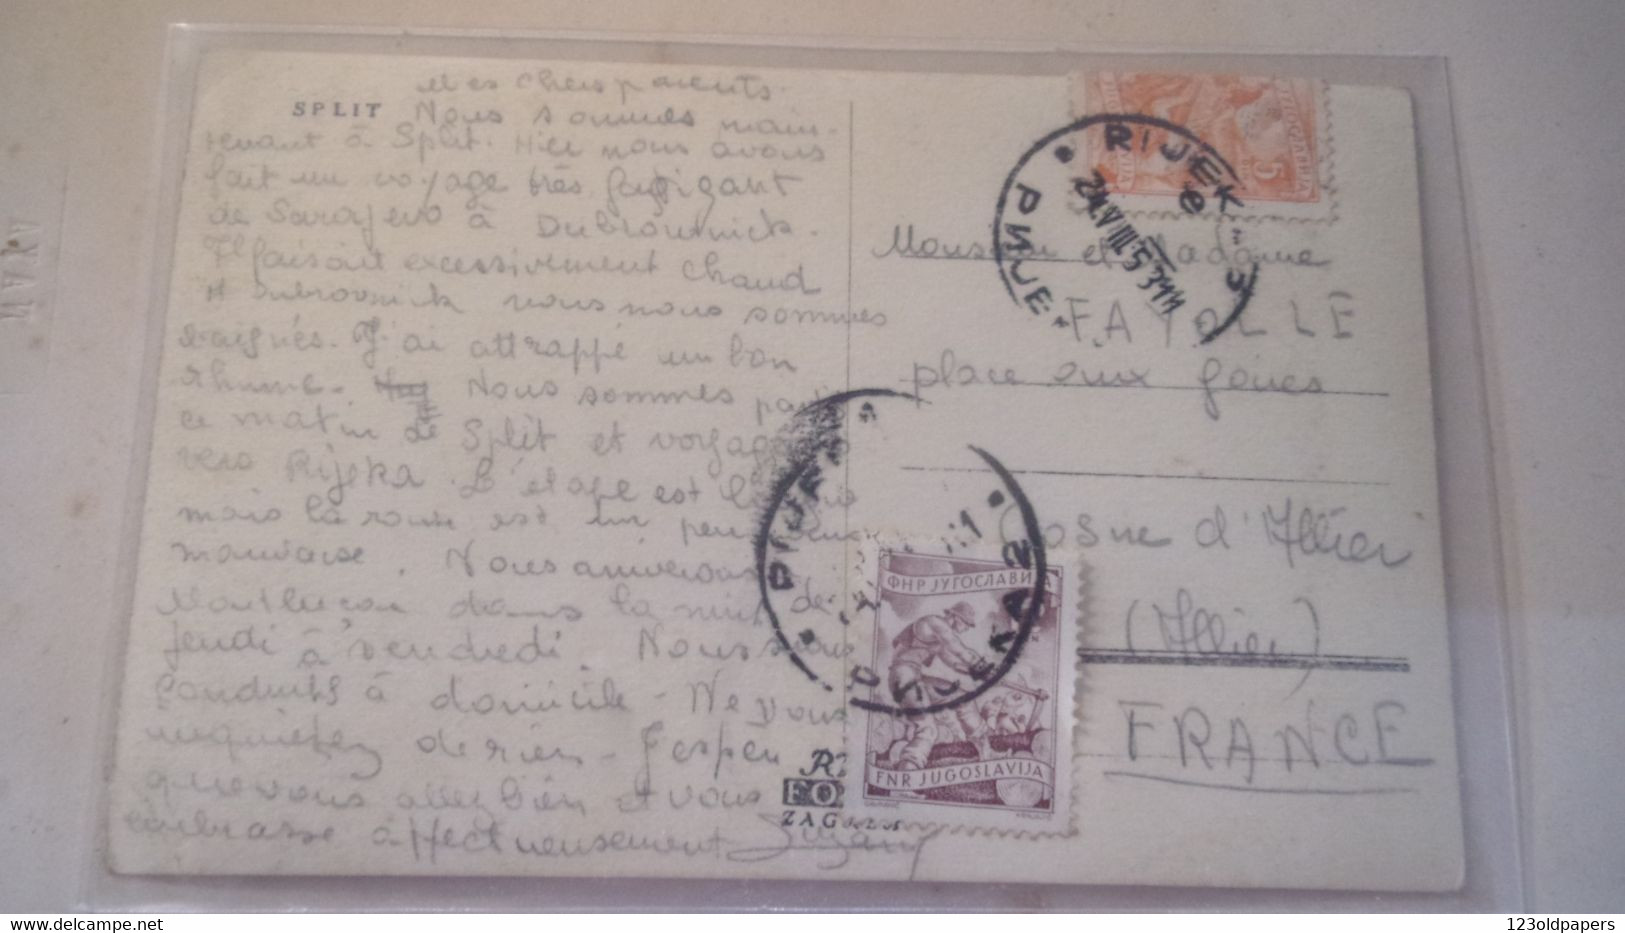 SPLIT
Mes chers parents.
Nous sommes main-
tenant à Split. Hier nous avons
fait un voyage très fatigant
de Sarajevo à Dubrownick.
Il faisait excessivement chaud
A Dubrovnick nous nous sommes
baignés. J'ai attrappé un bon
rhume. Nous sommes partis
ce matin de Split et voyageons
vers Rijeka. L'étape est
mais la route est un peu
mauvaise. Nous arriverons
Montluçon dans la nuit de
jeudi à vendredi. Nous serons
conduits à domicile - Ne vous
inquiétez de rien - J'espère
que vous allez bien et vous
embrasse affectueusement
RIJEKA
24.VIII.53
Monsieur et Madame
FAYOLLE
place aux foires
Cosne d'Allier
(Allier)
FRANCE
RIJEKA 2
ФНР ЈУГОСЛАВИЈА
FNR JUGOSLAVIJA
JUGOSLAVIJA
5
123oldpapers